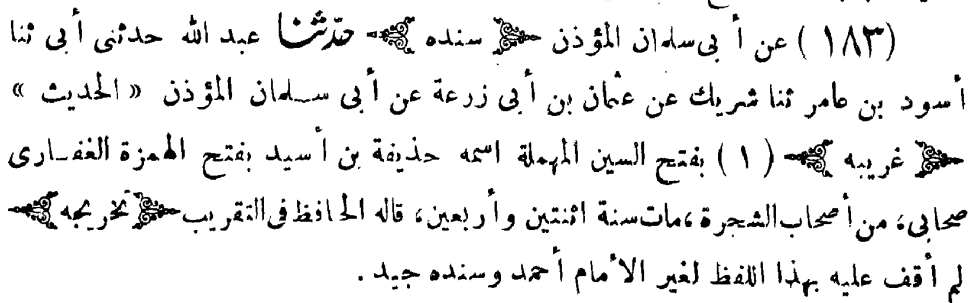 (١٨٣) عن أبى سلمان المؤذن ﴿سنده﴾ حدّثنا عبد الله حدثنى أبى ثنا
أسود بن عامر ثنا شريك عن عثمان بن أبى زرعة عن أبى سلمان المؤذن « الحديث »
﴿غريبه﴾ (١) بفتح السين المهملة اسمه حذيفة بن أسيد بفتح الهمزة الغفارى
صحابى، من أصحاب الشجرة، مات سنة اثنتين وأربعين، قاله الحافظ فى التقريب ﴿تخريجه﴾
لم أقف عليه بهذا اللفظ لغير الأمام أحمد وسنده جيد .